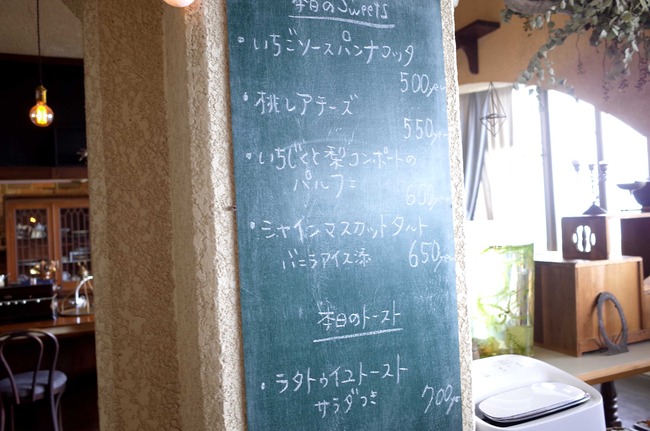 本日のSweets
・いちごソースパンナコッタ
500yen
・桃レアチーズ
550yen
・いちじくと梨コンポートの
パルフェ
600yen
・シャインマスカットタルト
バニラアイス添 650yen
本日のトースト
・ラタトゥイユトースト
サラダつき 700yen